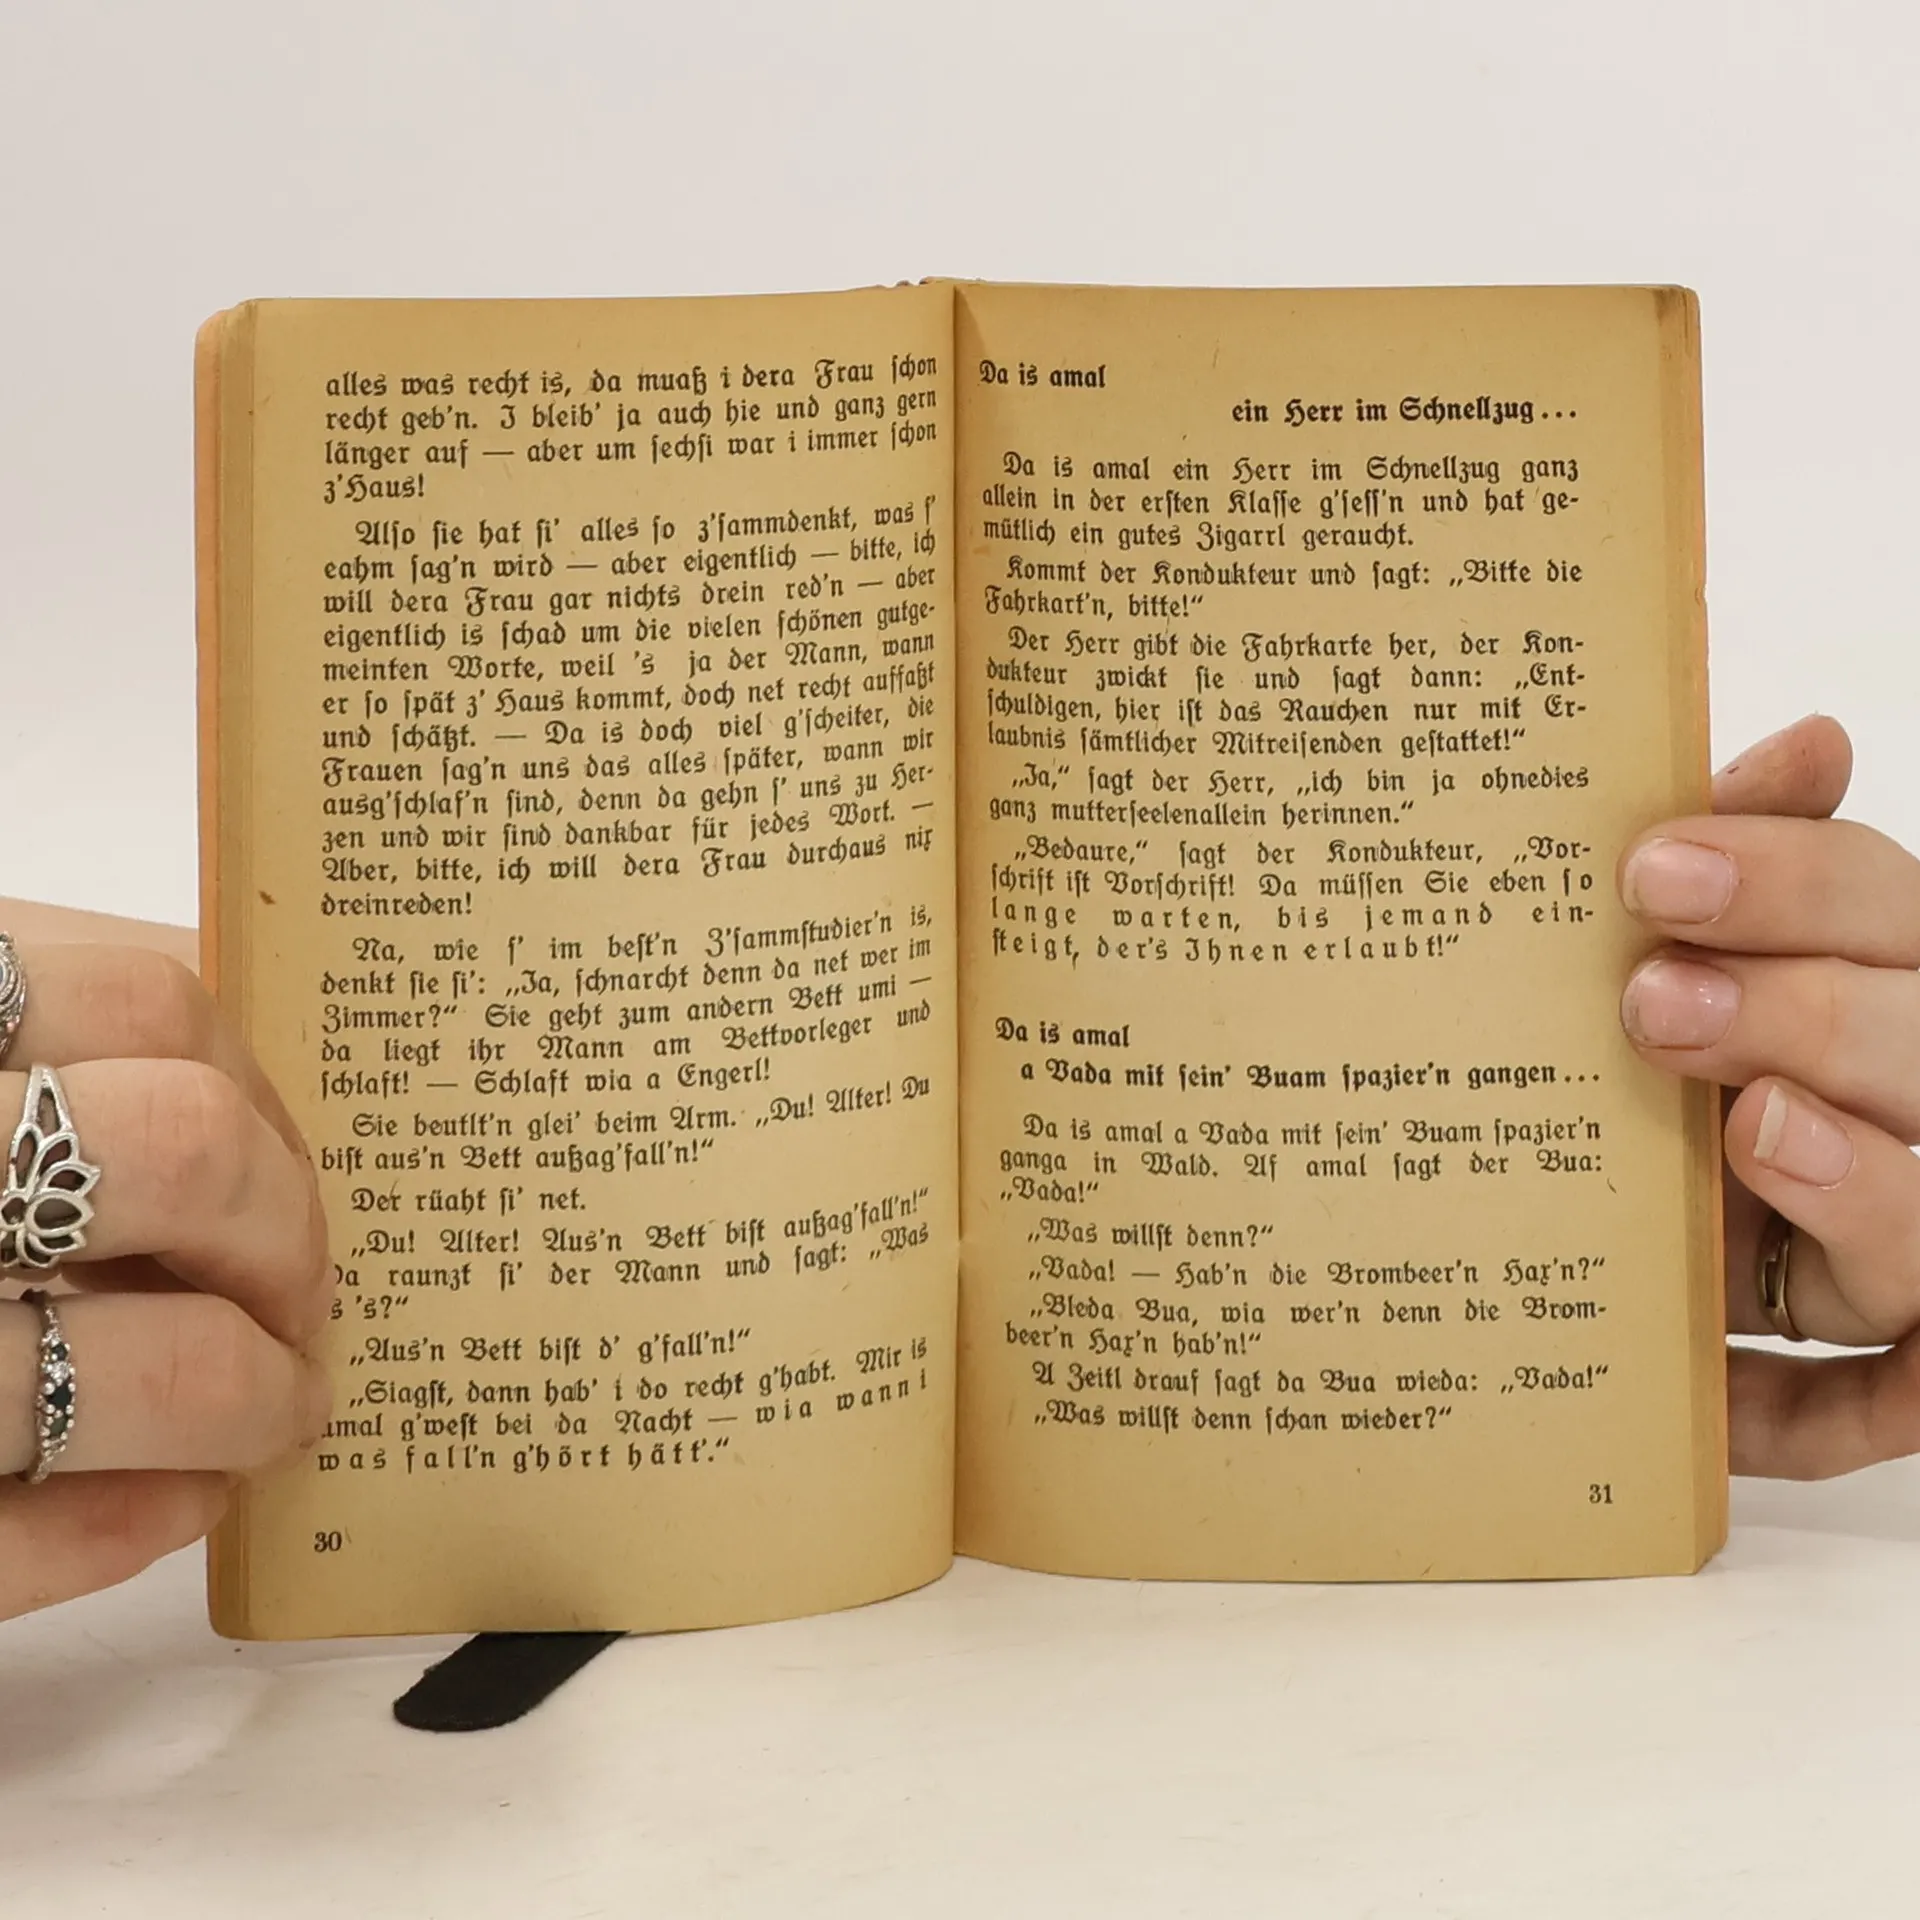 alles was recht is, da muaß i dera Frau schon
recht geb'n. I bleib' ja auch hie und ganz gern
länger auf — aber um sechsi war i immer schon
z'Haus!
Also sie hat si' alles so z'sammdenkt, was s'
eahm sag'n wird — aber eigentlich — bitte, ich
will dera Frau gar nichts drein red'n — aber
eigentlich is schad um die vielen schönen gutge-
meinten Worte, weil 's ja der Mann, wann
er so spät z' Haus kommt, doch net recht auffaßt
und schätzt. — Da is doch viel g'scheiter, die
Frauen sag'n uns das alles später, wann wir
ausg'schlaf'n sind, denn da gehn s' uns zu Her-
zen und wir sind dankbar für jedes Wort. —
Aber, bitte, ich will dera Frau durchaus nix
dreinreden!
Na, wie s' im best'n Z'sammstudier'n is,
denkt sie si': „Ja, schnarcht denn da net wer im
Zimmer?“ Sie geht zum andern Bett umi —
da liegt ihr Mann am Bettvorleger und
schlaft! — Schlaft wia a Engerl!
Sie beutlt'n glei' beim Arm. „Du! Alter! Du
bist aus'n Bett außag'fall'n!“
Der rüaht si' net.
„Du! Alter! Aus'n Bett bist außag'fall'n!“
Da raunzt si' der Mann und sagt: „Was
s 's?“
„Aus'n Bett bist d' g'fall'n!“
„Siagst, dann hab' i do recht g'habt. Mir is
amal g'west bei da Nacht — wia wann i
was fall'n g'hört hätt'.“
30
Da is amal
ein Herr im Schnellzug...
Da is amal ein Herr im Schnellzug ganz
allein in der ersten Klasse g'sess'n und hat ge-
mütlich ein gutes Zigarrl geraucht.
Kommt der Kondukteur und sagt: „Bitte die
Fahrkart'n, bitte!“
Der Herr gibt die Fahrkarte her, der Kon-
dukteur zwickt sie und sagt dann: „Ent-
schuldigen, hier ist das Rauchen nur mit Er-
laubnis sämtlicher Mitreisenden gestattet!“
„Ja,“ sagt der Herr, „ich bin ja ohnedies
ganz mutterseelenallein herinnen.“
„Bedaure,“ sagt der Kondukteur, „Vor-
schrift ist Vorschrift! Da müssen Sie eben so
lange warten, bis jemand ein-
steigt, der's Ihnen erlaubt!“
Da is amal
a Vada mit sein' Buam spazier'n gangen...
Da is amal a Vada mit sein' Buam spazier'n
ganga in Wald. Af amal sagt der Bua:
„Vada!“
„Was willst denn?“
„Vada! — Hab'n die Brombeer'n Hax'n?“
„Bleda Bua, wia wer'n denn die Brom-
beer'n Hax'n hab'n!“
A Zeitl drauf sagt da Bua wieda: „Vada!“
„Was willst denn schan wieder?“
31